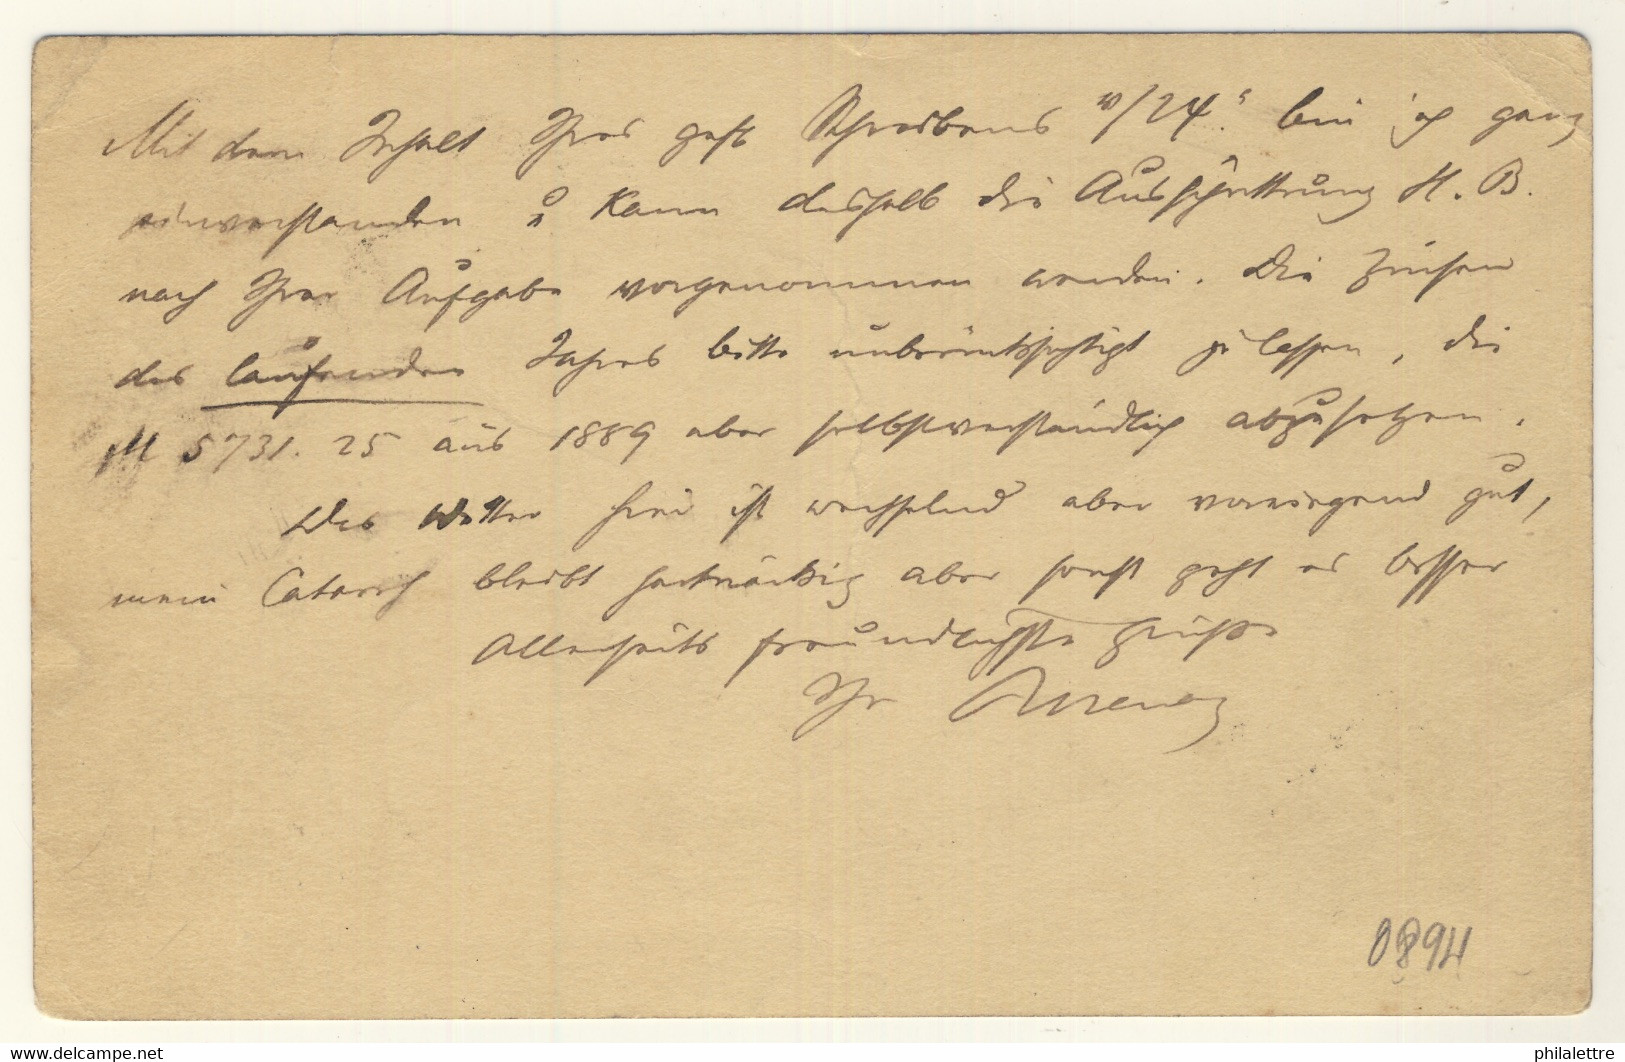 Mit dem Inhalt Ihres gefl Schreibens v/24.s bin ich ganz
einverstanden u kann deshalb die Ausschüttung H. B.
nach Ihrer Aufgabe vorgenommen werden. Die Zinsen
des laufenden Jahres bitte unberücksichtigt zu lassen, die
M 5731. 25 aus 1889 aber selbstverständlich abzusetzen.
Das Wetter hier ist wechselnd aber vorwiegend gut,
mein Catarrh bleibt hartnäckig aber sonst geht es besser
Allerseits freundlichste Grüße
Ihr
0894
philalettre
www.delcampe.net